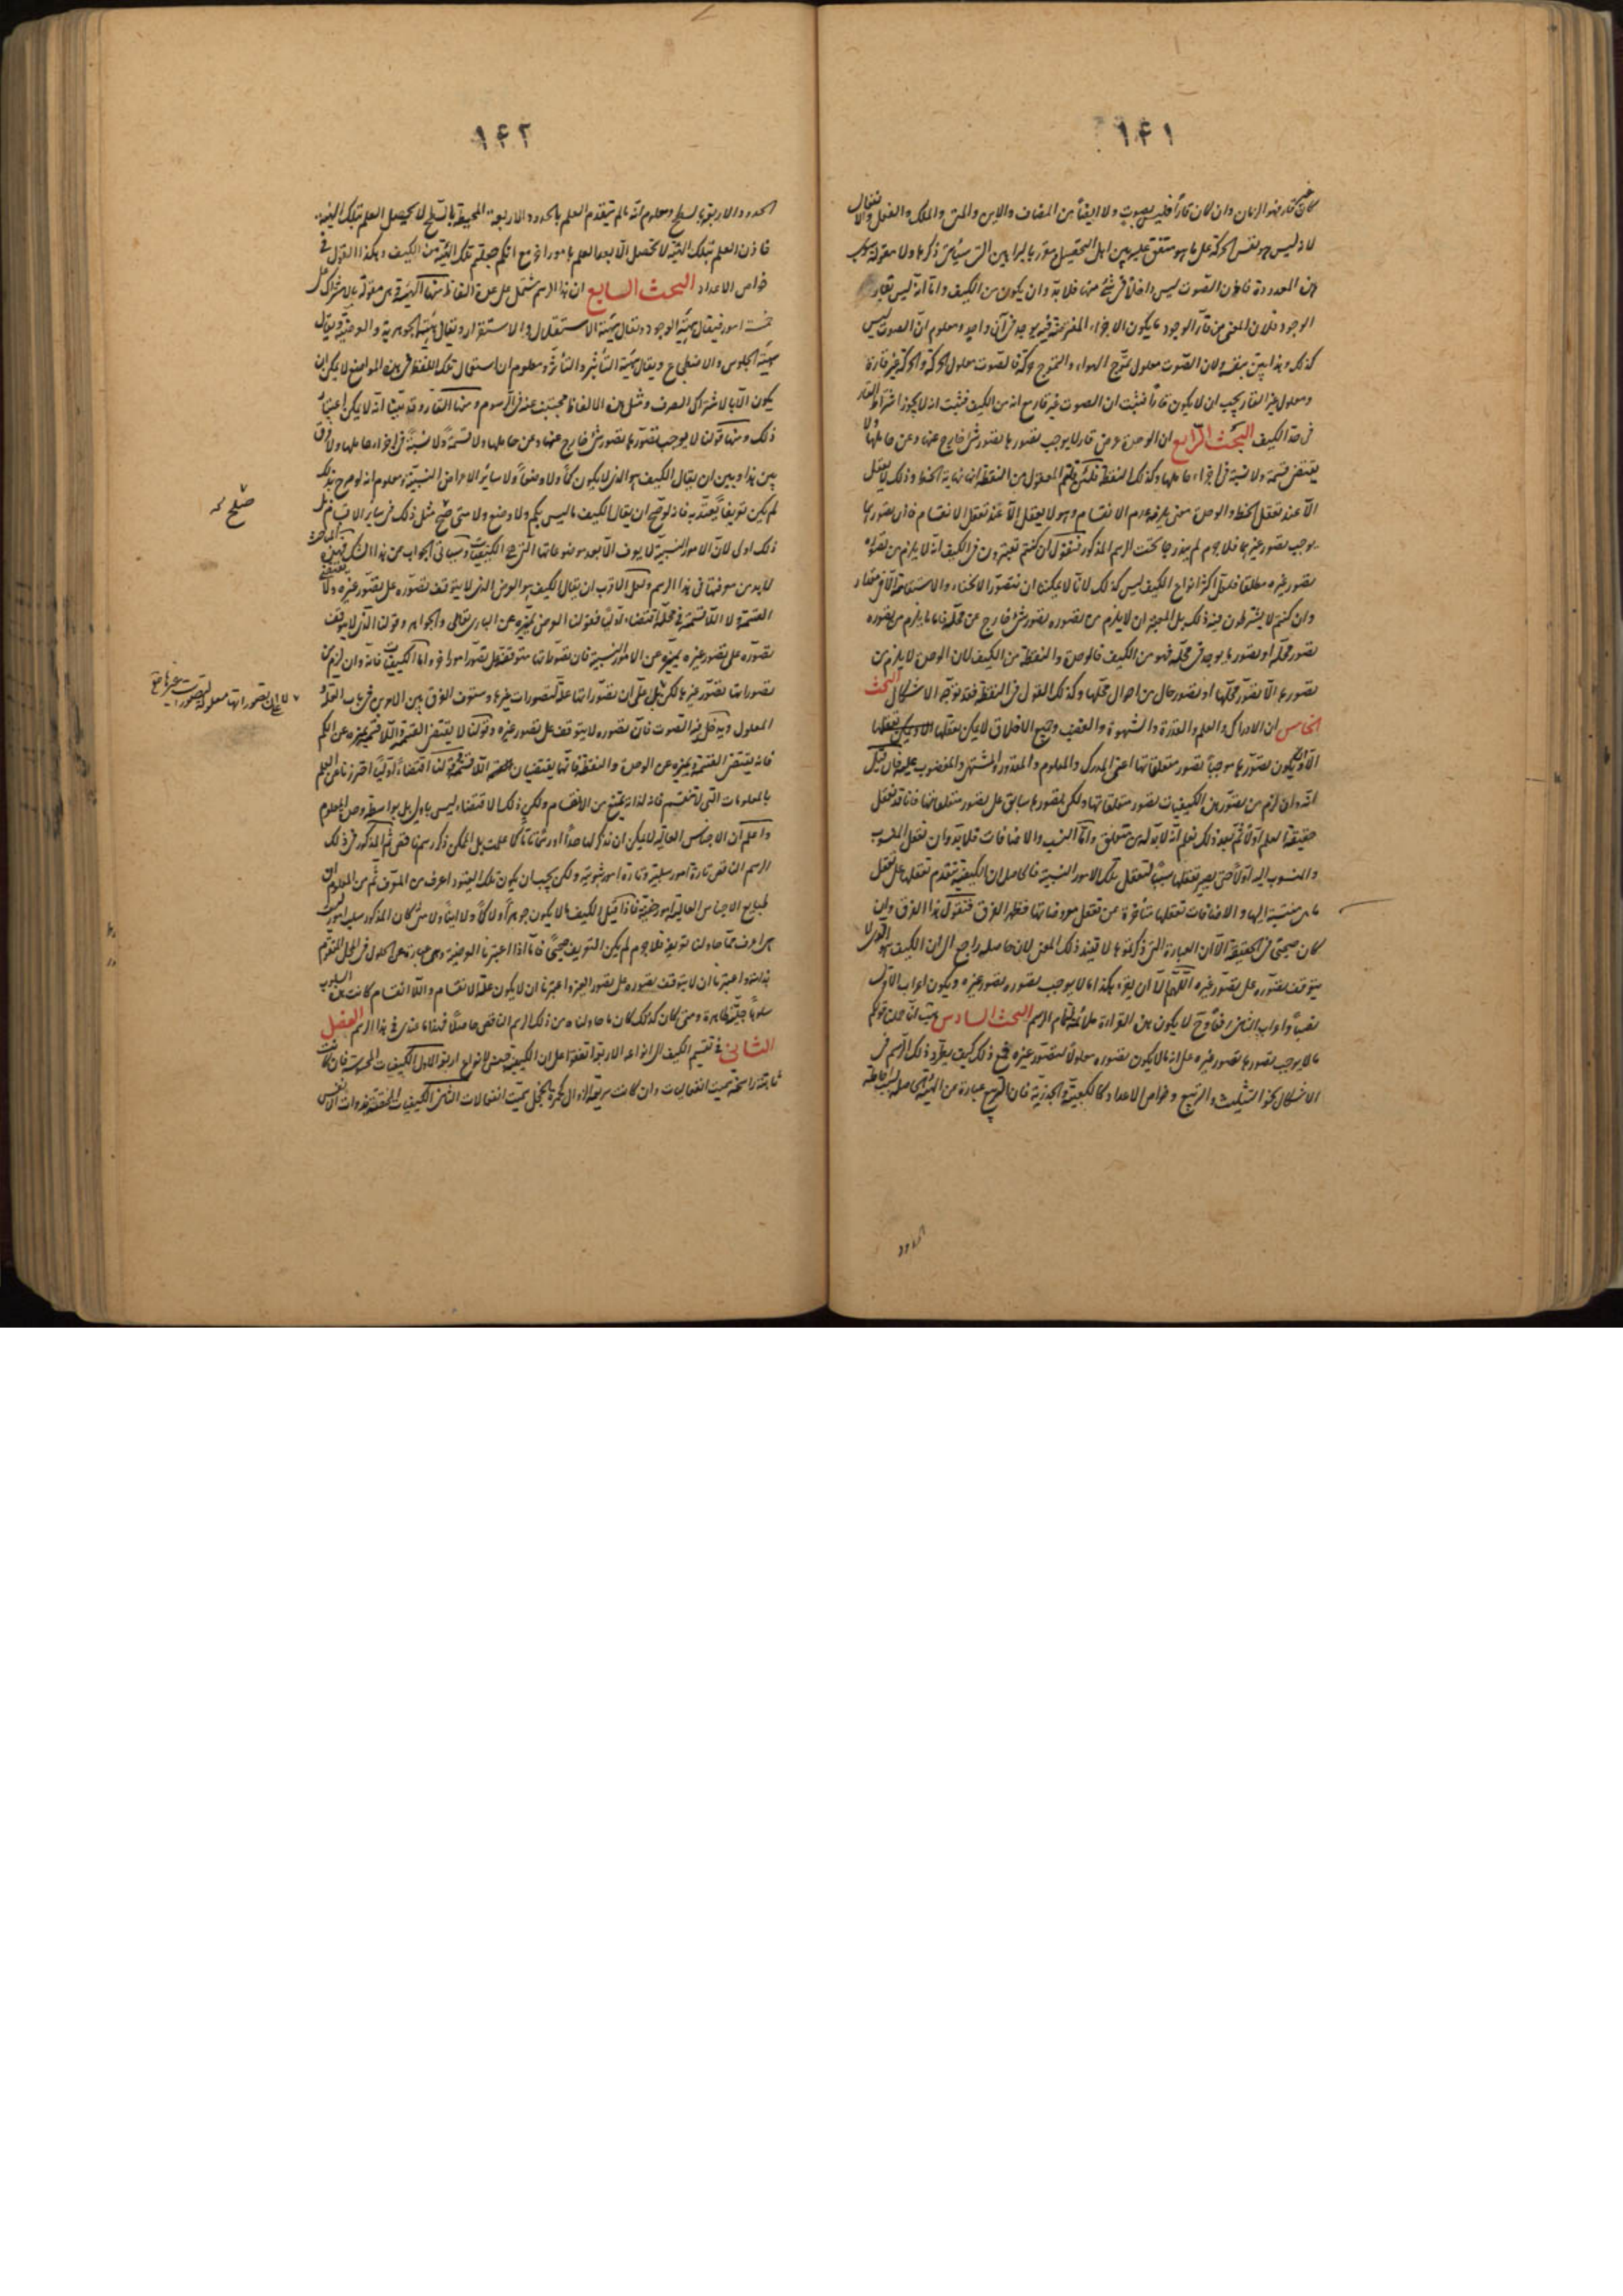 ١٤١
لا ذليس هو نفس الحركة على ما هو متفق عليه بين اهل التحصيل
هذه المعدودة فاذن الصوت ليس داخلاً فى شئ منها فلا بد وان يكون من الكيف واما انه ليس بقار
الوجود فلان المعنى من قار الوجود ما يكون الاجزاء المفترضة فيه يوجد فى آن واحد ومعلوم ان الصوت ليس
كذلك وهذا بين بنفسه ولان الصوت معلول تموج الهواء والتموج حركة فالصوت معلول الحركة والحركة غير قارة
ومعلول غير القار يجب ان لا يكون قاراً فثبت ان الصوت غير قار مع انه من الكيف فثبت انه لا يجوز اشتراط القار
فى حد الكيف البحث الرابع ان الوحدة عرض قار لا يوجب تصورها تصور شئ خارج عنها وعن حاملها ولا
يقتضى قسمة ولا نسبة فى اجزاء حاملها وكذلك النقطة
الا عند تعقل الخط والوحدة معنى يلزمه عدم الانقسام وهو لا يعقل الا عند تعقل الانقسام فاذن تصورها
يوجب تصور غيرها فلا جرم لم يندرجا تحت الرسم المذكور فنقول ان كنتم تعتبرون فى الكيف انه لا يلزم من تصوره
تصور غيره مطلقا فلعل اكثر انواع الكيف ليس كذلك لانا لا يمكننا ان نتصور الانحناء والاستقامة الا فى مقدار
وان كنتم لا يشترطون فيه ذلك بل المعتبر ان لا يلزم من تصوره تصور شئ خارج عن محله فاما ما يلزم من تصوره
تصور محله او تصور ما يوجد فى محله فهو من الكيف فالوحدة والنقطة من الكيف لان الوحدة لا يلزم من
تصورها الا تصور محلها او تصور حال من احوال محلها وكذلك القول فى النقطة فقد توجه الاشكال البحث
الخامس ان الادراك والعلم والقدرة والشهوة والغضب وجميع الاخلاق لا يمكن تعقلها
الا ويكون تصورها موجبا تصور متعلقاتها اعنى المدرك والمعلوم والمقدور والمشتهى والمغضوب عليه فان قيل
انه وان لزم من تصور هذه الكيفيات تصور متعلقاتها ولكن تصورها سابق على تصور متعلقاتها فانا قد نعقل
حقيقة العلم اولا ثم بعد ذلك نعلم انه لا بد له من متعلق واما النسب والاضافات فلا بد وان نعقل المنسوب
والمنسوب اليه اولا حتى يصير تعقلها سببا لتعقل تلك الامور النسبية فالحاصل ان الكيفية تقدم تعقلها على تعقل
ما هى منتسبة اليها والاضافات تعقلها متأخرة عن تعقل معروضاتها فظهر الفرق فنقول هذا الفرق وان
كان صحيحا فى الحقيقة الا ان العبارة التى ذكرتموها لا تفيد ذلك المعنى لان حاصله راجع الى ان الكيف هو الذى لا
يتوقف تصوره على تصور غيره اللهم الا ان يقرء هكذا ما لا يوجب تصوره تصور غيره ويكون اعراب الاول
نصبا واعراب الثانى رفعا وح لا يكون هذه القراءة ملائمة لتمام الرسم البحث السادس هب انا حملنا قولكم
ما لا يوجب تصورها تصور غيره على انه ما لا يكون تصوره معلولا لتصور غيره فمع ذلك كيف يطرد ذلك الرسم فى
الاشكال نحو التثليث والتربيع وخواص الاعداد كالكعبية والجذرية فان التربيع عبارة عن الهيئة الحاصلة بسبب احاطة
الحدود
١٤٢
الحدود الاربعة بالسطح ومعلوم انه ما لم يتقدم العلم بالحدود الاربعة المحيطة بالسطح لا يحصل العلم بتلك الهيئة
فاذن العلم بتلك الهيئة لا يحصل الا بعد العلم بامور اخر مع انكم جعلتم تلك الهيئة من الكيف وهكذا القول فى
خواص الاعداد البحث السابع ان هذا الرسم مشتمل على عدة الفاظ منها الهيئة وهى مقولة بالاشتراك على
خمسة امور فيقال هيئة الوجود ويقال هيئة الاستقلال والاستقرار ويقال هيئة الجوهرية والعرضية ويقال
هيئة الجلوس والاضطجاع ويقال هيئة التأثير والتأثر ومعلوم ان استعمال تلك اللفظة فى هذه المواضع لا يمكن ان
يكون الا بالاشتراك الصرف ومثل هذه الالفاظ مجتنب عنه فى الرسوم ومنها القار وقد بينا انه لا يمكن اعتبار
ذلك ومنها قولنا لا يوجب تصورها تصور شئ خارج عنها وعن حاملها ولا قسمة ولا نسبة فى اجزاء حاملها ولا فرق
بين هذا وبين ان يقال الكيف هو الذى لا يكون كما ولا وضعا ولا سائر الاعراض النسبية ومعلوم انه لو صرح بذلك
لم يكن تعريفا يعتد به فانه لو صح ان يقال الكيف ما ليس بكم ولا وضع ولا متى صح مثل ذلك فى سائر الاقسام بل
ذلك اولى لان الامور النسبية لا يعرف الا بعد معروضاتها التى هى الكيفيات وسيأتى الجواب عن هذا الشك فهذه المباحث
لا بد من معرفتها فى هذا الرسم ولعل الاقرب ان يقال الكيف هو العرض الذى لا يتوقف تصوره على تصور غيره ولا يقتضى
القسمة ولا اللاقسمة فى محله اقتضاء اوليا فقولنا العرض يميزه عن البارى تعالى والجواهر وقولنا الذى لا يتوقف
تصوره على تصور غيره يميزه عن الامور النسبية فان تصوراتها متوقفة على تصور امور اخر واما الكيفيات فانه وان لزم من
تصوراتها تصور غيرها لكن
المعلول ويدخل فيه الصوت فان تصوره لا يتوقف على تصور غيره وقولنا لا يقتضى القسمة واللاقسمة يميزه عن الكم
فانه يقتضى القسمة ويميزه عن الوحدة والنقطة فانهما يقتضيان اللاقسمة وقولنا اقتضاء اوليا احترزنا عن العلم
بالمعلومات التى لا تنقسم فانه لذاته يمتنع من الانقسام ولكن ذلك الاقتضاء ليس باولى بل بواسطة وحدة المعلوم
واعلم ان الاجناس العالية لا يمكن ان نذكر لها حدا او رسما تاما كما علمت بل الممكن ذكر رسم ناقص ثم المذكور فى ذلك
الرسم الناقص تارة امور سلبية وتارة امور ثبوتية ولكن يجب ان يكون تلك القيود اعرف من المعرف ثم من المعلوم ان
طبايع الاجناس العالية امور خفية فاذا قيل الكيف ما لا يكون جوهرا ولا كما ولا اينا ولا متى كان المذكور سلب امور ليست
هى اعرف مما حاولنا تعريفه فلا جرم لم يكن التعريف صحيحا فاما اذا اعتبرنا العرضية وهى عبارة عن الحلول فى المحل المتقوم
بذاته واعتبرنا ان لا يتوقف تصوره على تصور الغير واعتبرنا ان لا يكون علة الانقسام واللاانقسام كانت هذه السلوب
سلوبا جلية ظاهرة ومتى كان كذلك كان ما حاولناه من ذلك الرسم الناقص حاصلا فهذا ما عندى فى هذا الرسم الفصل
الثانى فى تقسيم الكيف الى انواعه الاربعة اتفقوا على ان الكيفية جنس لانواع اربعة الاول الكيفيات المحسوسة فان كانت
ثابتة راسخة سميت انفعاليات وان كانت سريعة الزوال كحمرة الخجل سميت انفعالات الثانى الكيفيات المختصة بذوات الانفس